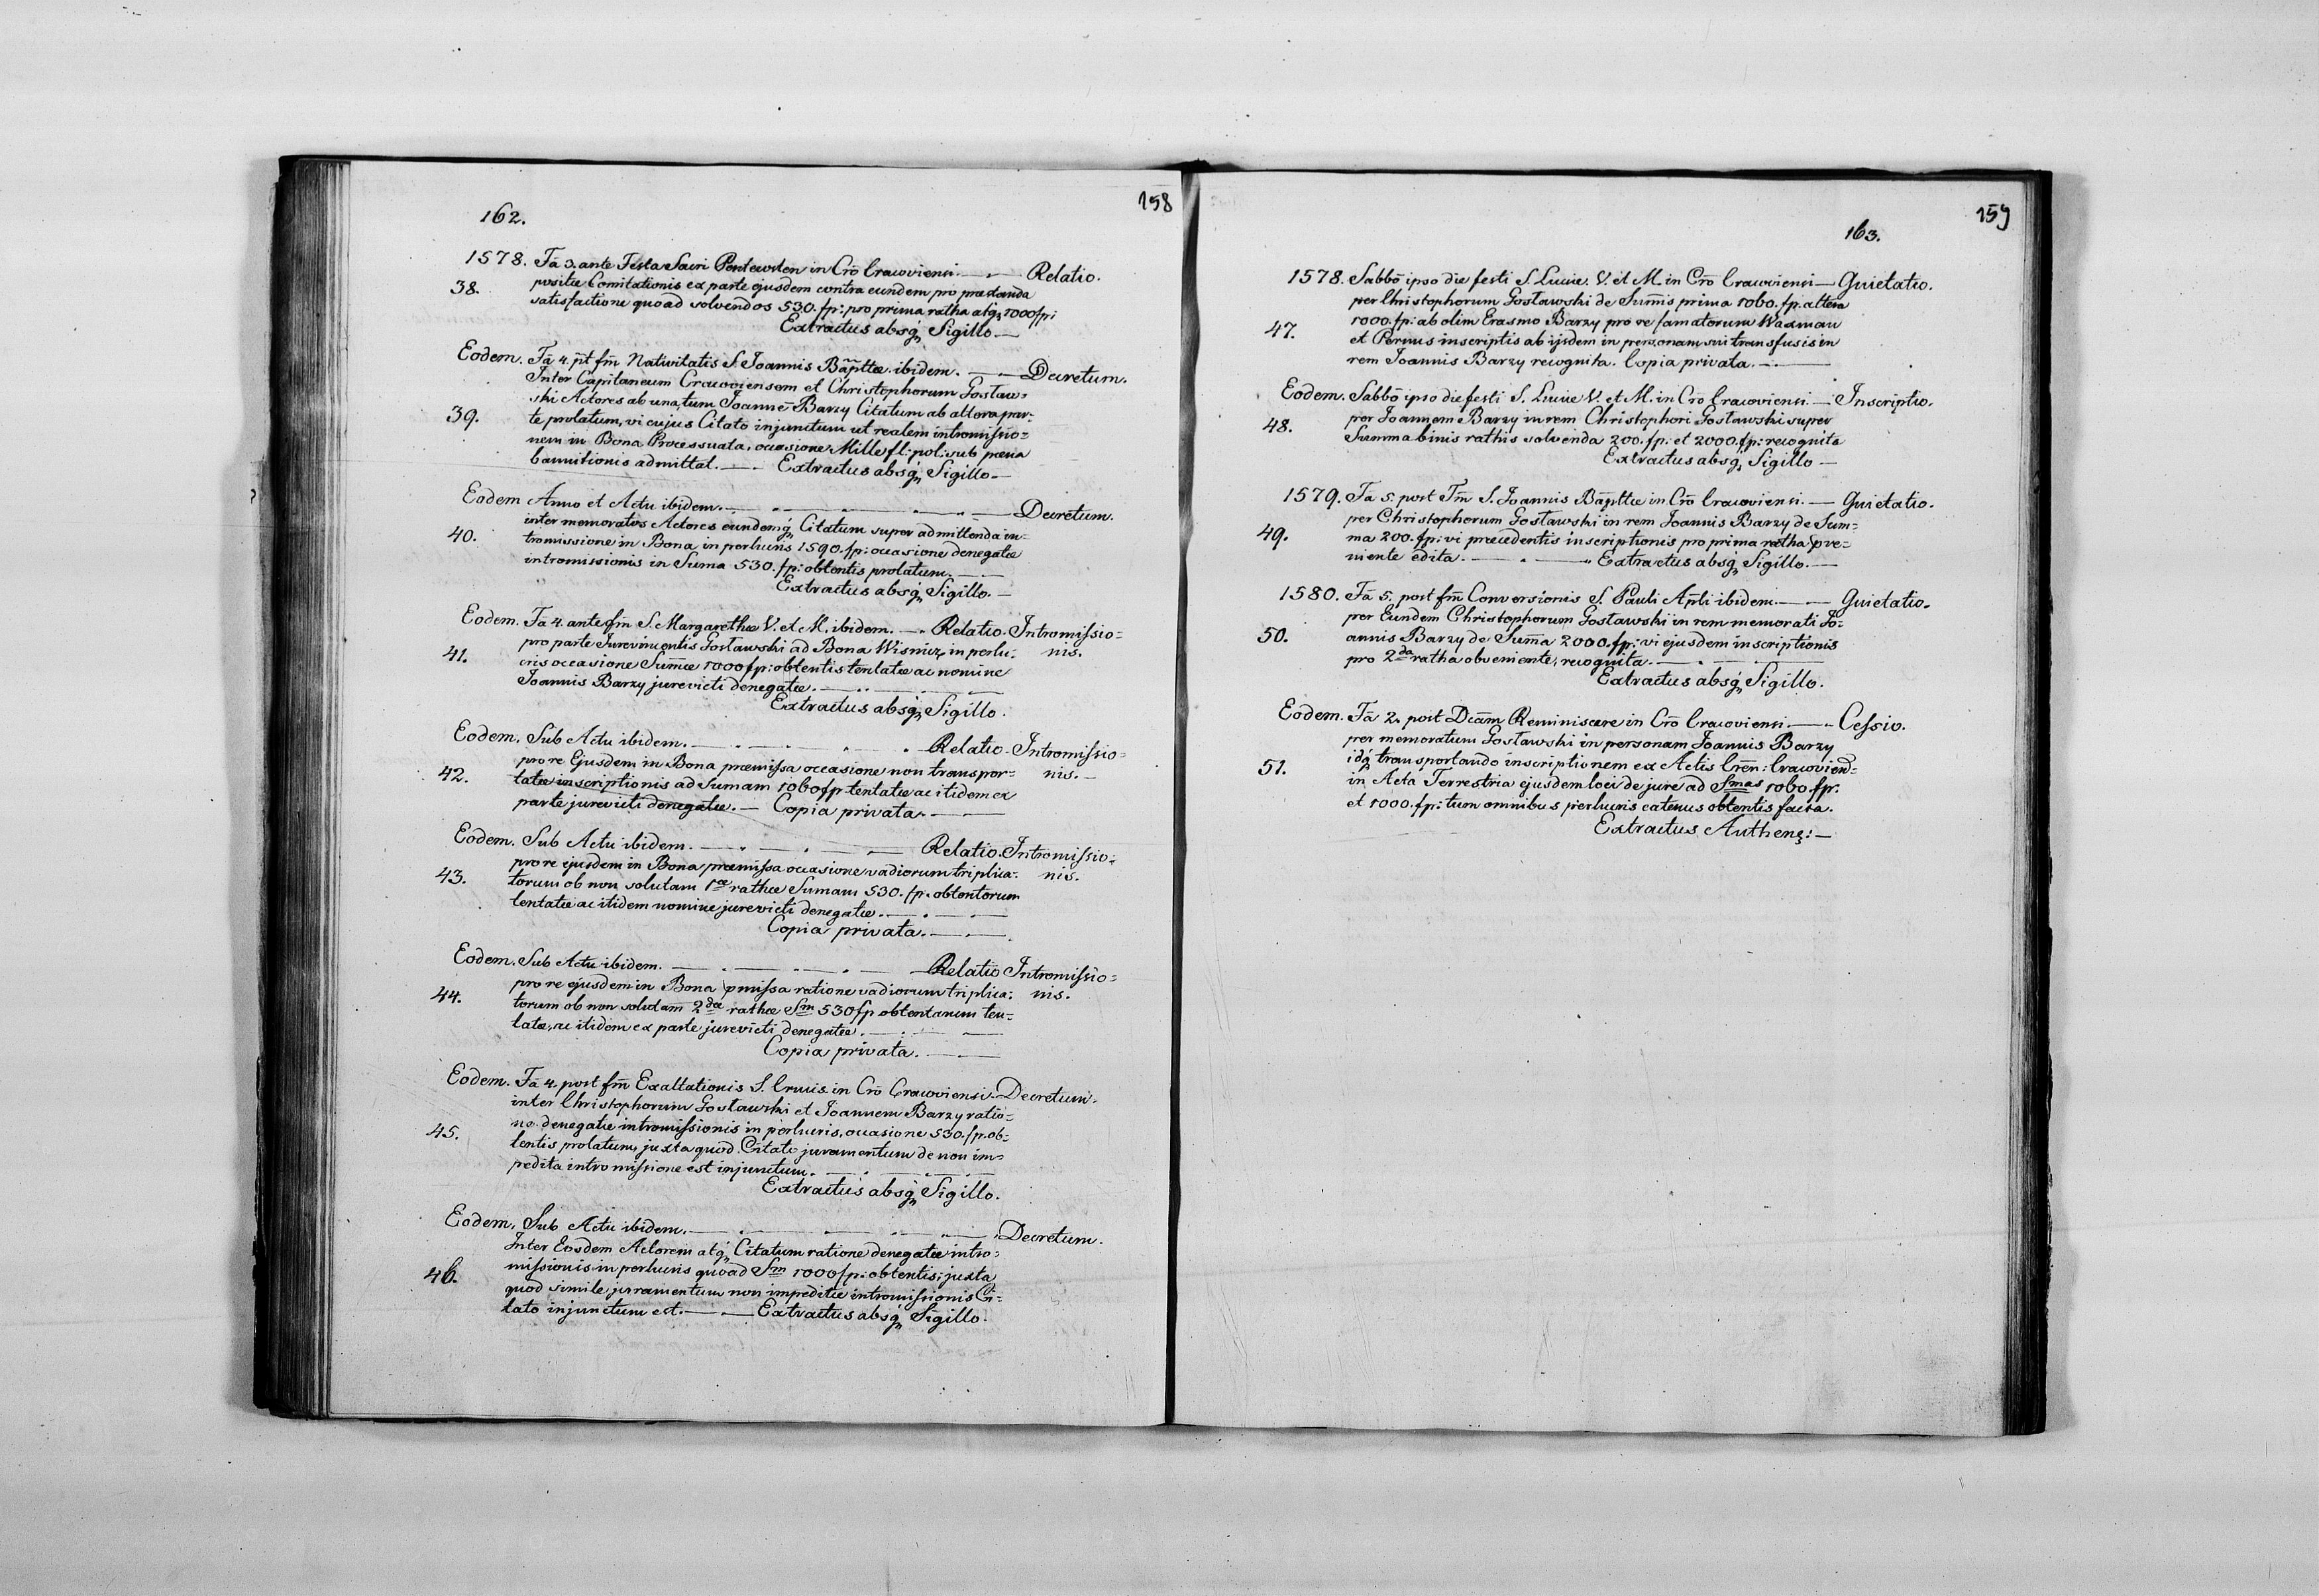 158
162.
1578. Fã 3. ante Festa Sacri Pentecosten in Crõ Cracoviensi. — Relatio.
38. positæ Comitationis ex parte ejusdem contra eundem pro præstanda
satisfactione quoad solvendos 530. fp: pro prima ratha atq, 1000 fp:
Extractus absq, Sigillo —
Eodem. Fã 4. pt fm̃ Nativitatis S. Joannis Bãpttæ ibidem. — Decretum.
Inter Capitaneum Cracoviensem et Christophorum Gosław=
ski Actores ab una, tum Joannẽ Barzy Citatum ab altera par=
39. te prolatum, vi cujus Citato injunctum ut realem intromissio=
nem in Bona Processuata, occasione Mille fl: pol: sub pœna
bannitionis admittat. — Extractus absq, Sigillo —
Eodem Anno et Actu ibidem. — Decretum.
inter memoratos Actores eundemq, Citatum super admittenda in=
40. tromissione in Bona in perlucris 1590. fp: occasione denegatæ
intromissionis in Suma 530. fp: obtentis prolatum. —
Extractus absq, Sigillo. —
Eodem. Fã 4. ante fm̃ S. Margarethæ V. et M. ibidem. — Relatio Intromissio=
pro parte Jurevincentis Gosławski ad Bona Wisnicz in perlu= nis.
41. cris occasione Sum̃æ 1000 fp: obtentis tentatæ ac nomine
Joannis Barzy jurevicti denegatæ. —
Extractus absq, Sigillo.
Eodem. Sub Actu ibidem. — Relatio Intromissio=
pro re Ejusdem in Bona præmissa occasione non transpor= nis. —
42. tatæ inscriptionis ad Sumam 1060 fp tentatæ ac itidem ex
parte jurevicti denegatæ. — Copia privata. —
Eodem. Sub Actu ibidem. — Relatio Intromissio=
pro re ejusdem in Bona præmissa occasione vadiorum triplica= nis.
43. torum ob non solutam 1æ rathæ Sumam 530. fp. obtentorum
tentatæ ac itidem nomine jurevicti denegatæ. —
Copia privata. —
Eodem. Sub Actu ibidem. — Relatio Intromissio=
pro re ejusdem in Bona pmissa ratione vadiorum triplica= nis.
44. torum ob non solutam 2dæ rathæ Sm 530 fp obtentarum ten=
tatæ, ac itidem ex parte jurevicti denegatæ. —
Copia privata. —
Eodem. Fã 4. post fm̃ Exaltationis S. Crucis in Crõ Cracoviensi. Decretum.
inter Christophorum Gosławski et Joannem Barzy ratio=
45. ne denegatæ intromissionis in perlucris, occasione 530. fp. ob=
tentis prolatum, juxta quod Citato juramentum de non im=
pedita intromissione est injunctum. —
Extractus absq, Sigillo.
Eodem. Sub Actu ibidem. — Decretum.
Inter Eosdem Actorem atq, Citatum ratione denegatæ intro=
46. missionis in perlucris quoad Sm 1000 fp: obtentis; juxta
quod simile juramentum non impeditæ intromissionis Ci=
tato injunctum est. — Extractus absq, Sigillo.
159
163.
1578. Sabbõ ipso die festi S. Luciæ. V. et M. in Crõ Cracoviensi — Quietatio.
per Christophorum Gosławski de Sum̃is prima 1060. fp. altera
47. 1000. fp: ab olim Erasmo Barzy pro re famatorum Waxman
et Pernus inscriptis ab ijsdem in personam sui transfusis in
rem Joannis Barzy recognita. Copia privata. —
Eodem. Sabbõ ipso die festi S. Luciæ V. et M. in Crõ Cracoviensi. — Inscriptio.
48. per Joannem Barzy in rem Christophori Gosławski super
Summa binis rathis solvenda 200. fp. et 2000. fp: recognita
Extractus absq, Sigillo —
1579. Fã 5. post Fm̃ S. Joannis Bãpttæ in Crõ Cracoviensi. — Quietatio.
per Christophorum Gosławski in rem Joannis Barzy de Sum=
49. ma 200. fp: vi præcedentis inscriptionis pro prima ratha pve=
niente edita. — Extractus absq, Sigillo. —
1580. Fã 5. post fm̃ Conversionis S. Pauli Apli ibidem. — Quietatio.
per Eundem Christophorum Gosławski in rem memorati Jo=
50. annis Barzy de Sum̃a 2000. fp: vi ejusdem inscriptionis
pro 2da ratha obveniente, recognita. —
Extractus absq, Sigillo.
Eodem. Fã 2. post Dcãm Reminiscere in Crõ Cracoviensi. — Cessio.
per memoratum Gosławski in personam Joannis Barzy
51. idq, transportando inscriptionem ex Actis Crẽn: Cracovien=
in Acta Terrestria ejusdem loci de jure ad Smas 1060. fp.
et 1000. fp: tum omnibus perlucris eatenus obtentis facta.
Extractus Authenţ: —